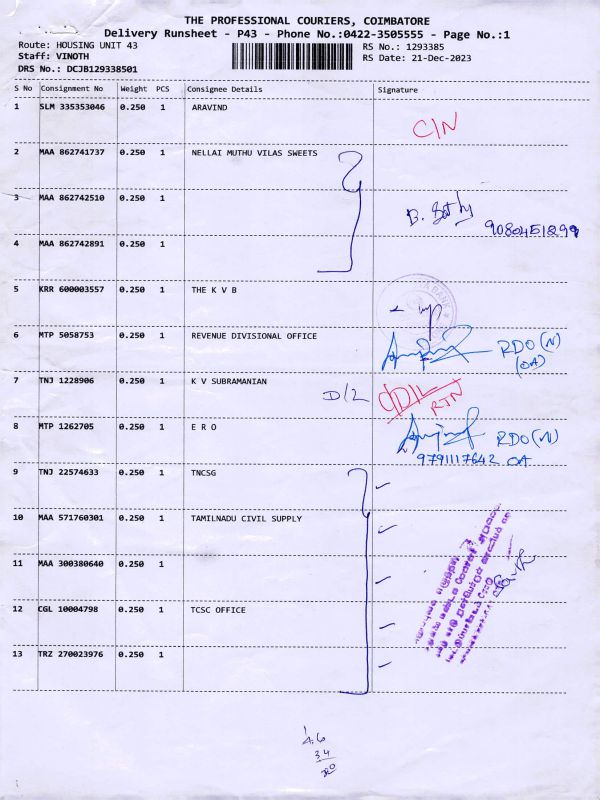 THE PROFESSIONAL COURIERS, COIMBATORE
Delivery Runsheet - P43 - Phone No.:0422-3505555 - Page No.:1
Route: HOUSING UNIT 43
RS No.: 1293385
Staff: VINOTH
RS Date: 21-Dec-2023
DRS No.: DCJB129338501
S No Consignment No Weight PCS Consignee Details Signature
1 SLM 335353046 0.250 1 ARAVIND
C/N
2 MAA 862741737 0.250 1 NELLAI MUTHU VILAS SWEETS
3 MAA 862742510 0.250 1
9080451299
4 MAA 862742891 0.250 1
5 KRR 600003557 0.250 1 THE K V B
6 MTP 5058753 0.250 1 REVENUE DIVISIONAL OFFICE
RDO (N)
(OA)
7 TNJ 1228906 0.250 1 K V SUBRAMANIAN
D/L
RTN
8 MTP 1262705 0.250 1 E R O
RDO (N)
9791117642 OA
9 TNJ 22574633 0.250 1 TNCSG
10 MAA 571760301 0.250 1 TAMILNADU CIVIL SUPPLY
11 MAA 300380640 0.250 1
12 CGL 10004798 0.250 1 TCSC OFFICE
13 TRZ 270023976 0.250 1
34